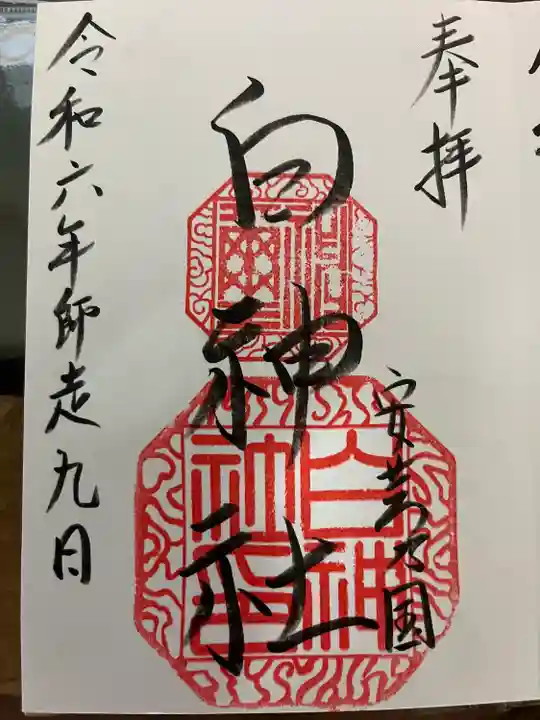 奉拝
安芸乃国
白神社
白神
社印
令和六年師走九日